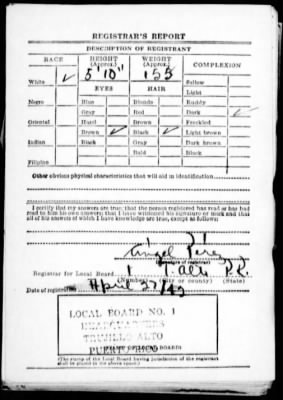 REGISTRAR'S REPORT
DESCRIPTION OF REGISTRANT
RACE HEIGHT (Approx.) WEIGHT (Approx.) COMPLEXION
5' 10" 155
White ✓ Sallow
EYES HAIR Light
Negro Blue Blonde Ruddy
Gray Red Dark ✓
Oriental Hazel Brown Freckled
Brown ✓ Black ✓ Light brown
Indian Black Gray Dark brown
Bald Black
Filipino
Other obvious physical characteristics that will aid in identification
I certify that my answers are true; that the person registered has read or has had
read to him his own answers; that I have witnessed his signature or mark and that
all of his answers of which I have knowledge are true, except as follows:
Angel Perez
(Signature of registrar)
Registrar for Local Board 1 T. Alto P.R.
(Number) (City or county) (State)
Date of registration April 27/42
LOCAL BOARD NO. 1
HEADQUARTERS
TRUJILLO ALTO
PUERTO RICO
(STAMP OF LOCAL BOARD)
(The stamp of the Local Board having jurisdiction of the registrant
shall be placed in the above space.)